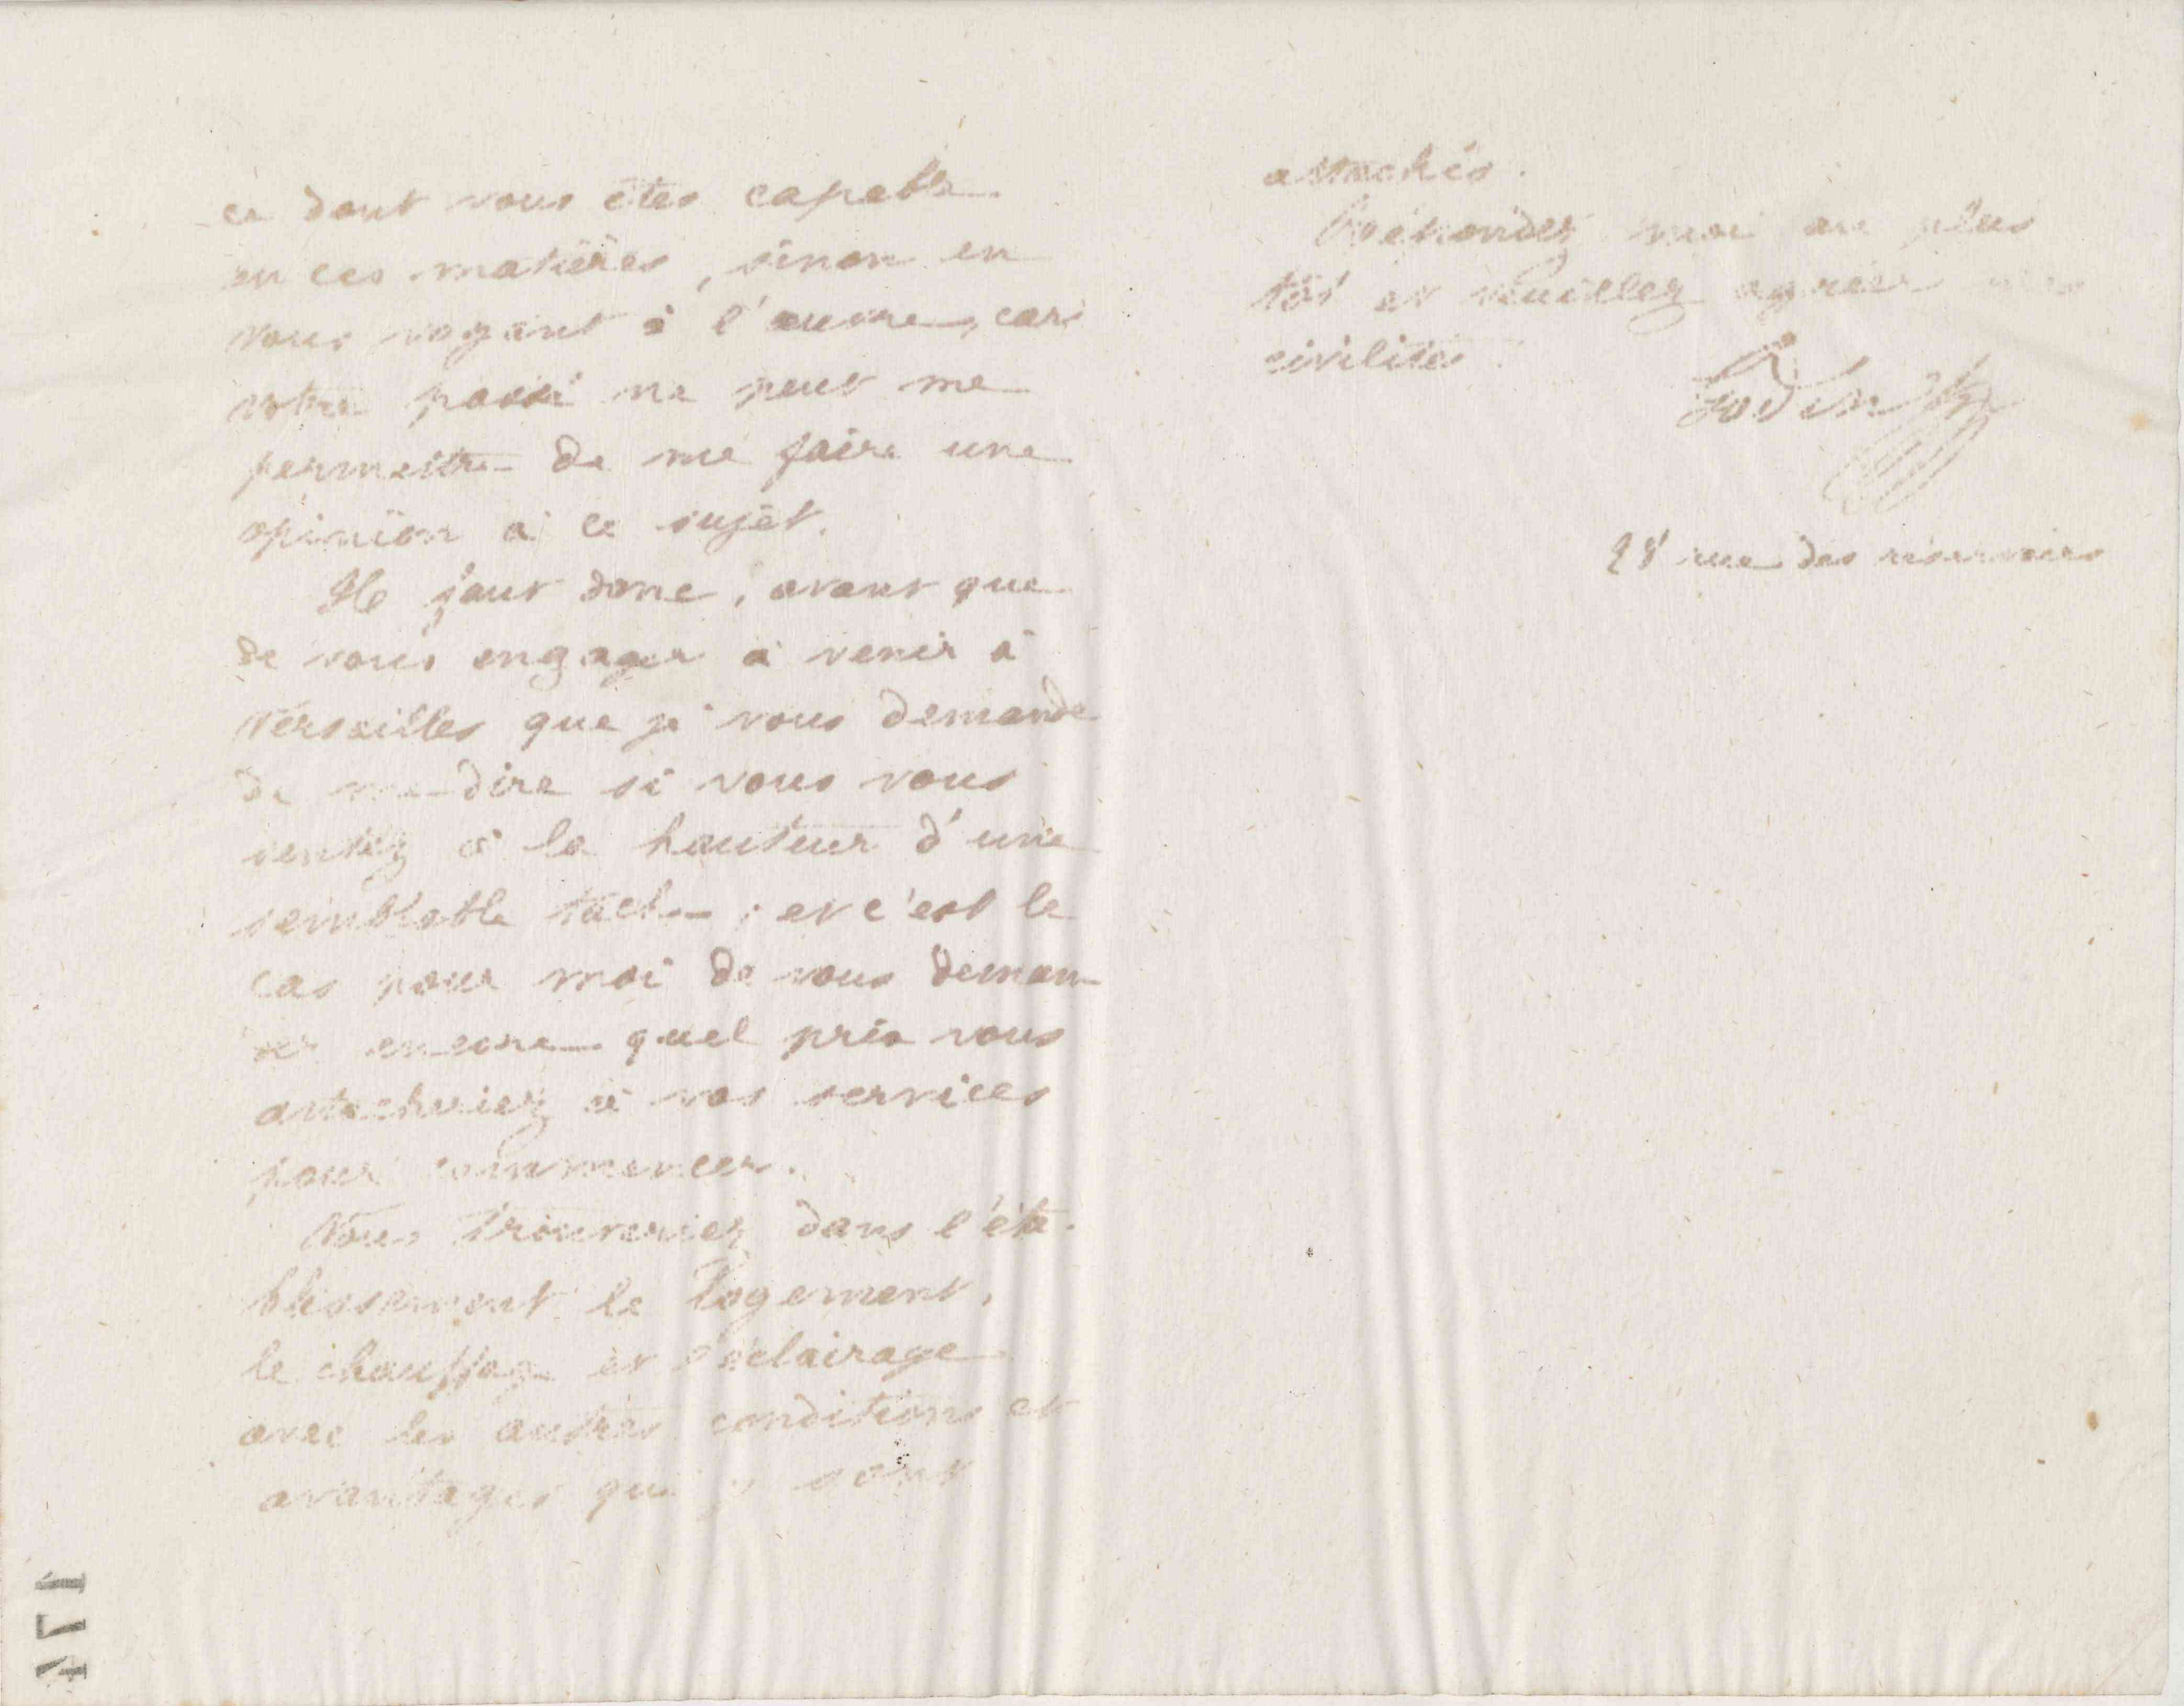 ce dont vous êtes capable
en ces matières, sinon en
vous voyant à l'œuvre, car
votre passé ne peut me
permettre de me faire une
opinion à ce sujet.
Il faut donc, avant que
de vous engager à venir à
Versailles que je vous demande
de me dire si vous vous
sentez à la hauteur d'une
semblable tâche ; et c'est le
cas pour moi de vous deman
der encore quel prix vous
attacheriez à vos services
pour commencer.
Vous trouveriez dans l'éta-
blissement le logement,
le chauffage et l'éclairage
avec les autres conditions et
avantages qui y sont
attachés.
Répondez moi au plus
tôt et veuillez agréer mes
civilités.
Godin
28 rue des réservoirs
171